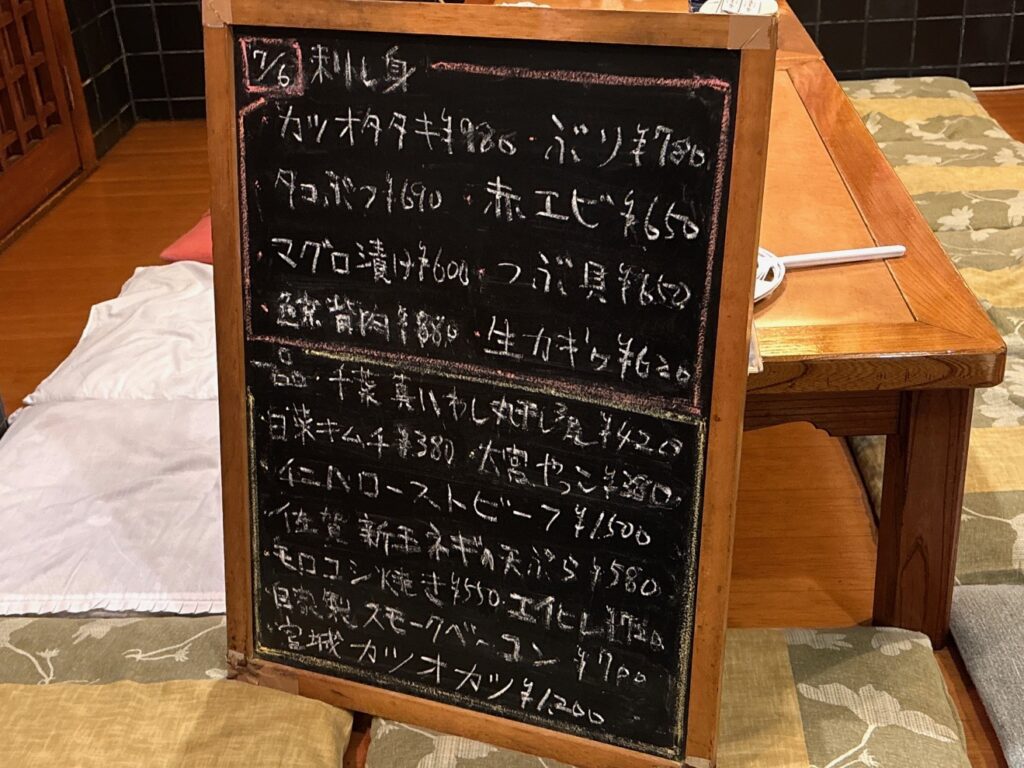 7/6 刺し身
・カツオタタキ¥980・ぶり¥780
・タコぶつ¥690・赤エビ¥650
・マグロ漬け¥600・つぶ貝¥650
・背肉¥880・生カキ¥620
一品・千葉真いわし丸干し¥420
・白菜キムチ¥380・大宮やっこ¥380
・ローストビーフ¥1500
・佐賀新玉ネギの天ぷら¥580
・モロコシ焼き¥550・エイヒレ¥720
・自家製スモークベーコン¥700
・宮城カツオカツ¥1,200